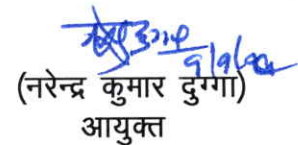 (नरेन्द्र कुमार दुग्गा)
आयुक्त